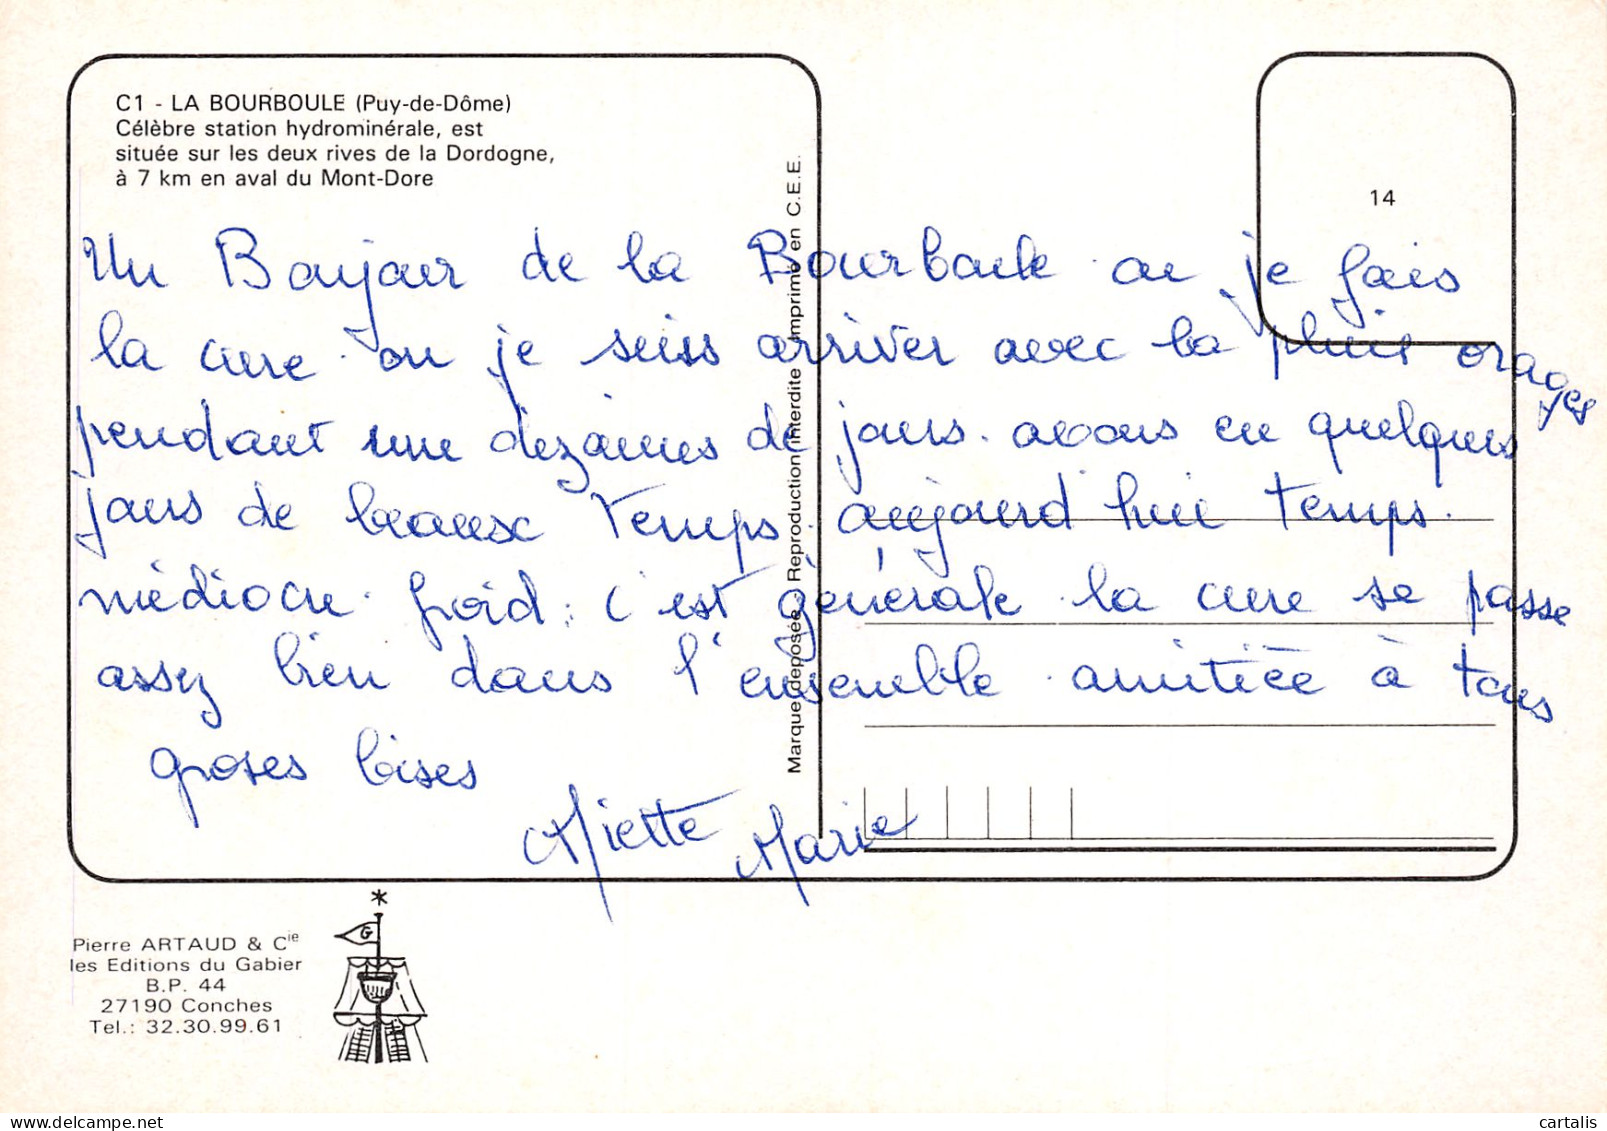 C1 - LA BOURBOULE (Puy-de-Dôme)
Célèbre station hydrominérale, est
située sur les deux rives de la Dordogne,
à 7 km en aval du Mont-Dore
14
Un Bonjour de la Bourboule ou je fais
la cure ou je suiss arriver avec la pluie orages
pendant une dezaines de jours. avons eu quelques
jours de beause temps. aujourd hui temps.
médiocre. froid, c'est générale la cure se passe
assez bien dans l'ensemble amitiée à tous
groses bises
Miette Marie
Marque déposée Reproduction interdite Imprimé en C.E.E.
Pierre ARTAUD & Cie
les Editions du Gabier
B.P. 44
27190 Conches
Tel.: 32.30.99.61
G
cartalis